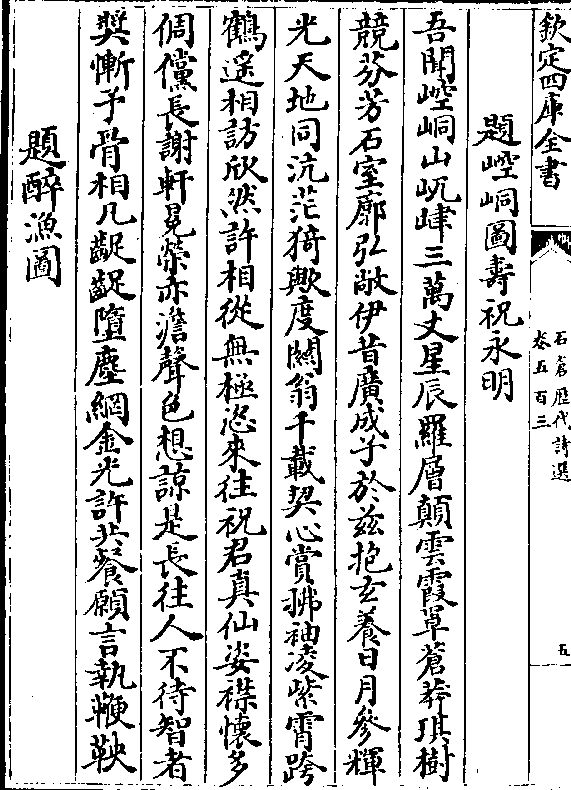 欽定四庫全書
石倉歷代詩選
卷五百三
五
題崆峒圖壽祝永明
吾聞崆峒山屼嵂三萬丈星辰羅層顛雲霞罩蒼莽琪樹
競芬芳石室廓弘敞伊昔廣成子於兹抱玄養日月參輝
光天地同沆茫猗歟度關翁千載契心賞拂袖凌紫霄跨
鶴遥相訪欣然許相從無極恣來往祝君真仙姿襟懷多
倜儻長謝軒冕榮亦澹聲色想諒是長往人不待智者
奬慚予骨相凡齷齪墮塵網金光許共餐願言執鞭鞅
題醉漁圖